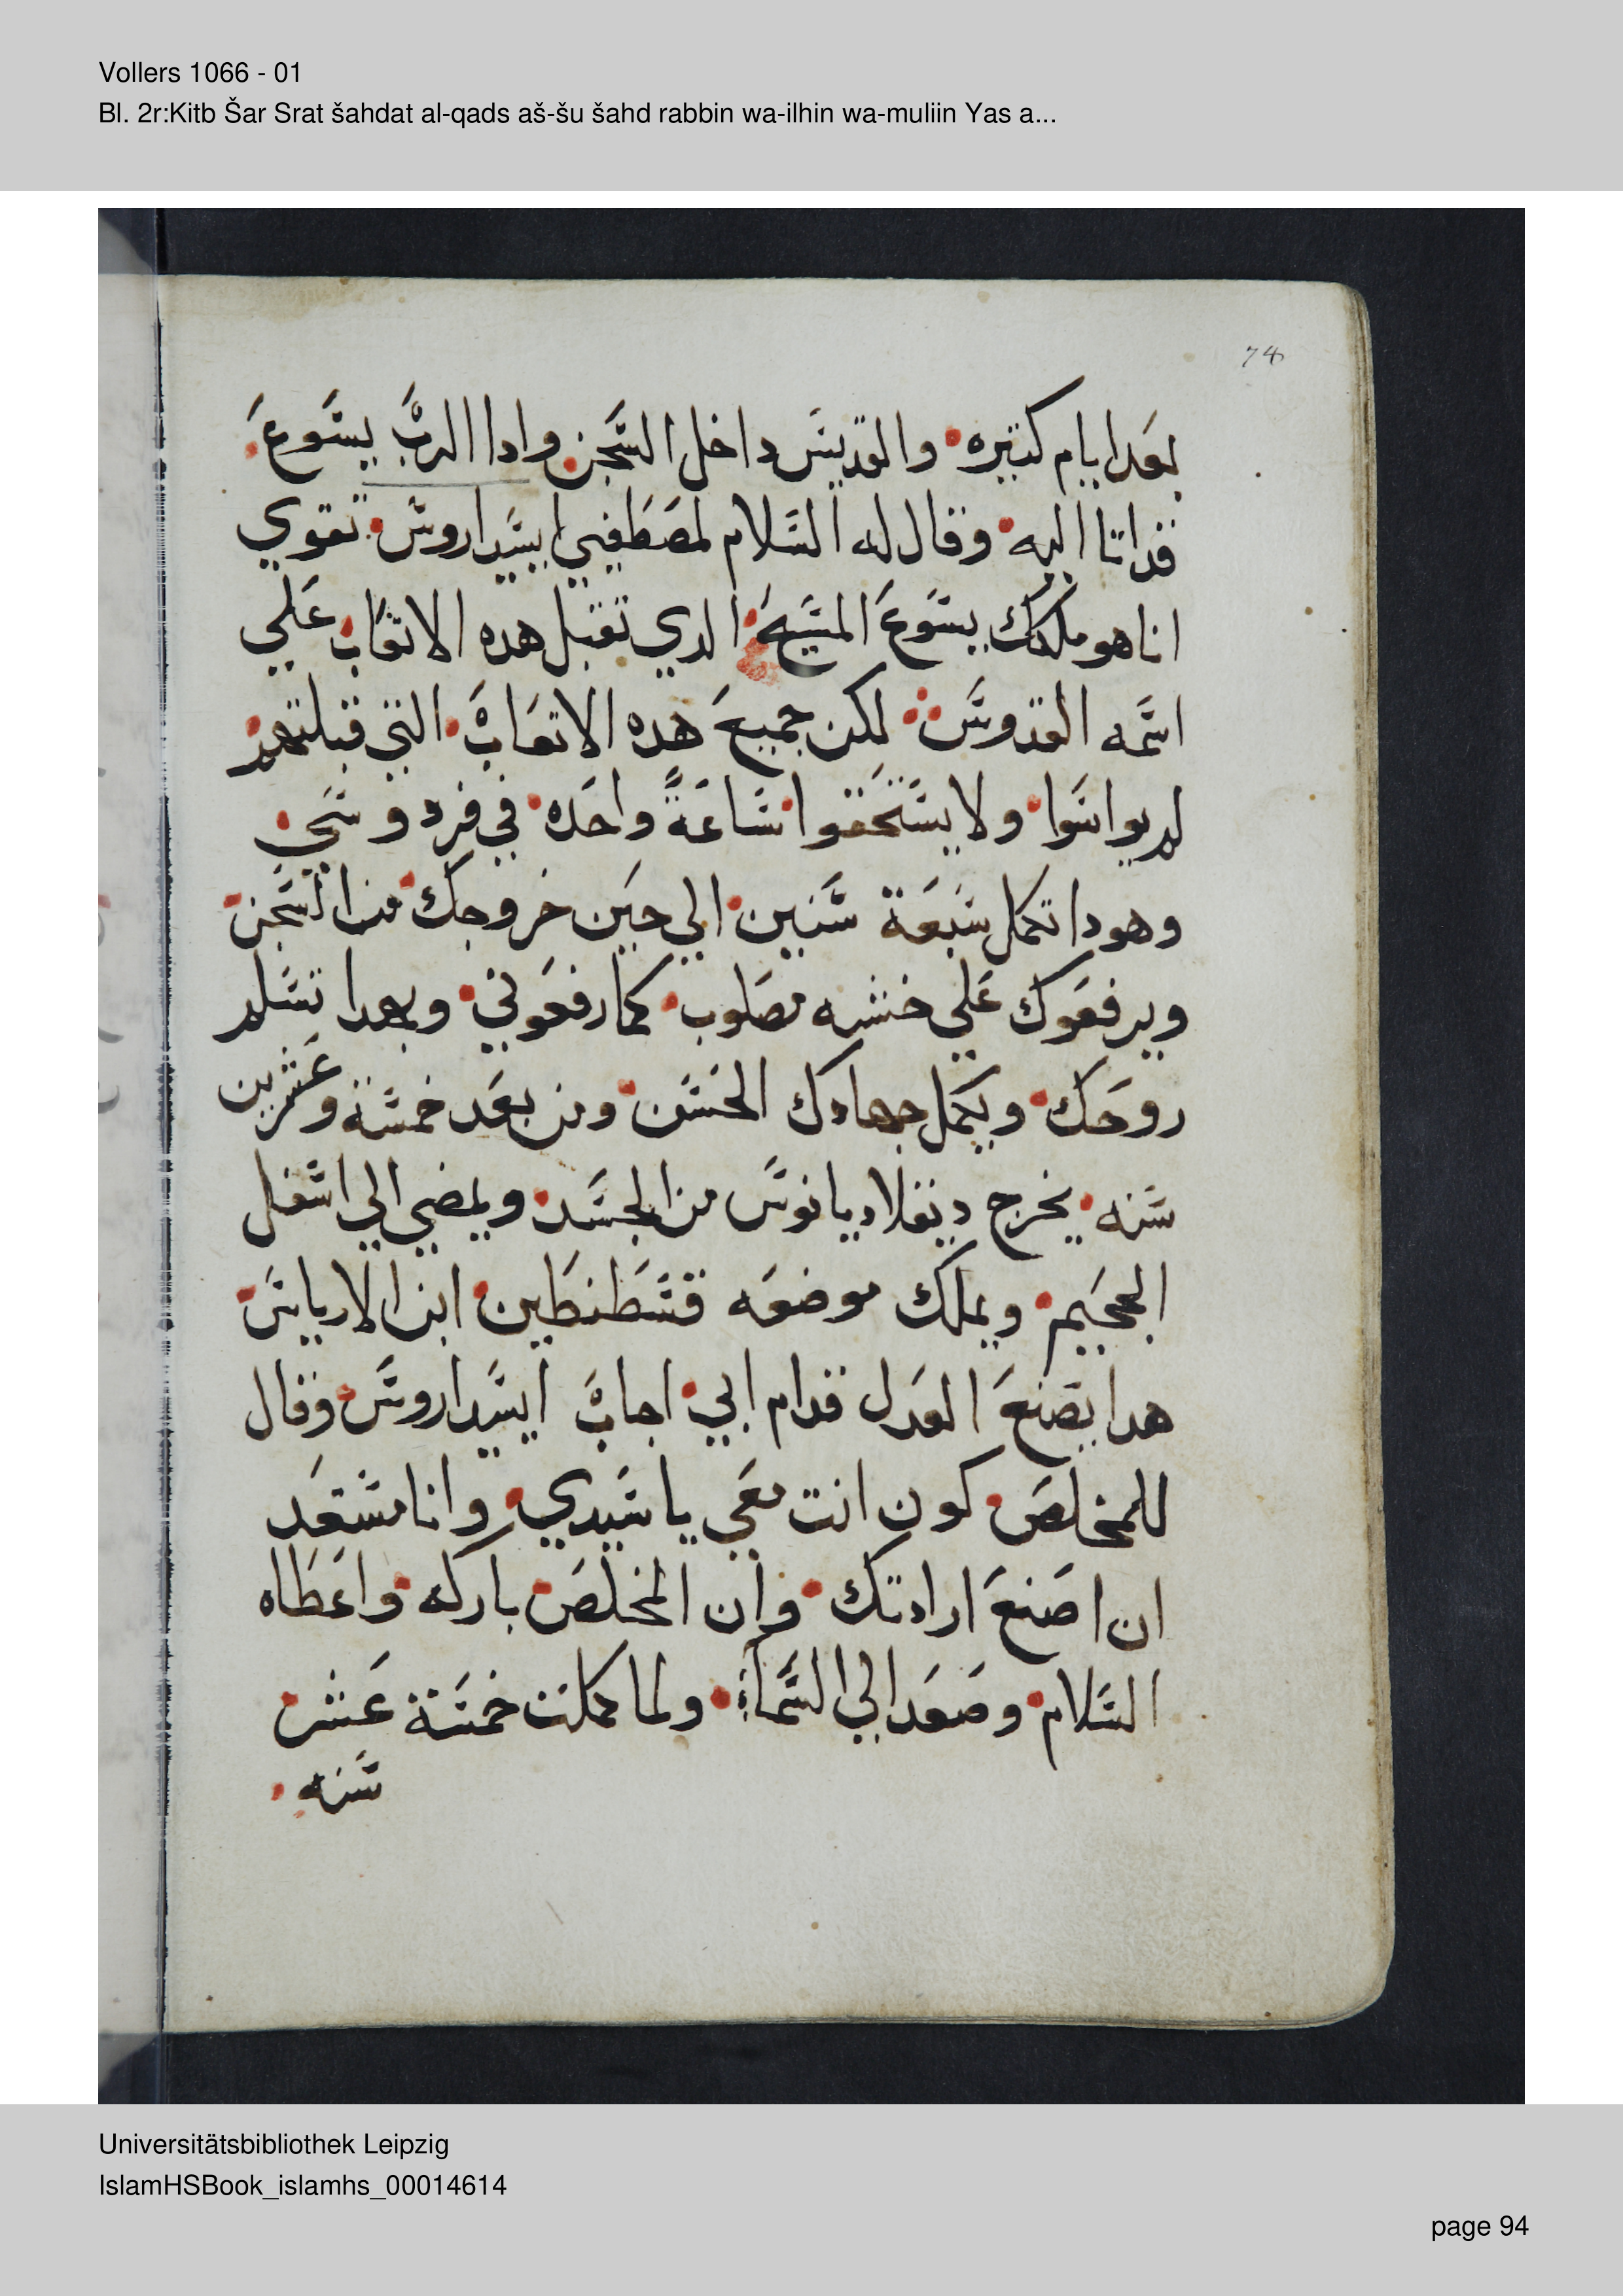 Vollers 1066 - 01
Bl. 2r:Kitb Šar Srat šahdat al-qads aš-šu šahd rabbin wa-ilhin wa-muliin Yas a...
74
بعد ايام كتيره والقديس داخل السجن وادا الرب يسوع
قد اتا اليه وقال له السلام لمصطفيي ايسيداروس تقوي
انا هو ملكك يسوع المسيح الدي تقبل هده الاتعاب علي
اسمه القدوس لكن جميع هده الاتعاب التي قبلتهم
لم يواسوا ولا يستحقوا ساعة واحده في فردوسي
وهودا تكمل سبعة سنين الي حين خروجك من السجن
ويرفعوك علي خشبه مصلوب كما رفعوني وبعدا تسلم
روحك ويكمل جهادك الحسن ومن بعد خمسة وعشرين
سنه يخرج ديقلاديانوس من الجسد ويمضي الي اسفل
الجحيم ويملك موضعه قسطنطين ابن الارياسي
هدا يصنع العدل قدام ابي اجاب ايسيداروس وقال
للمخلص كون انت معي يا سيدي وانا مستعد
ان اصنع ارادتك وان المخلص باركه واعطاه
السلام وصعد الي السماء ولما كملت خمسة عشر
سنه
Universitätsbibliothek Leipzig
IslamHSBook_islamhs_00014614
page 94